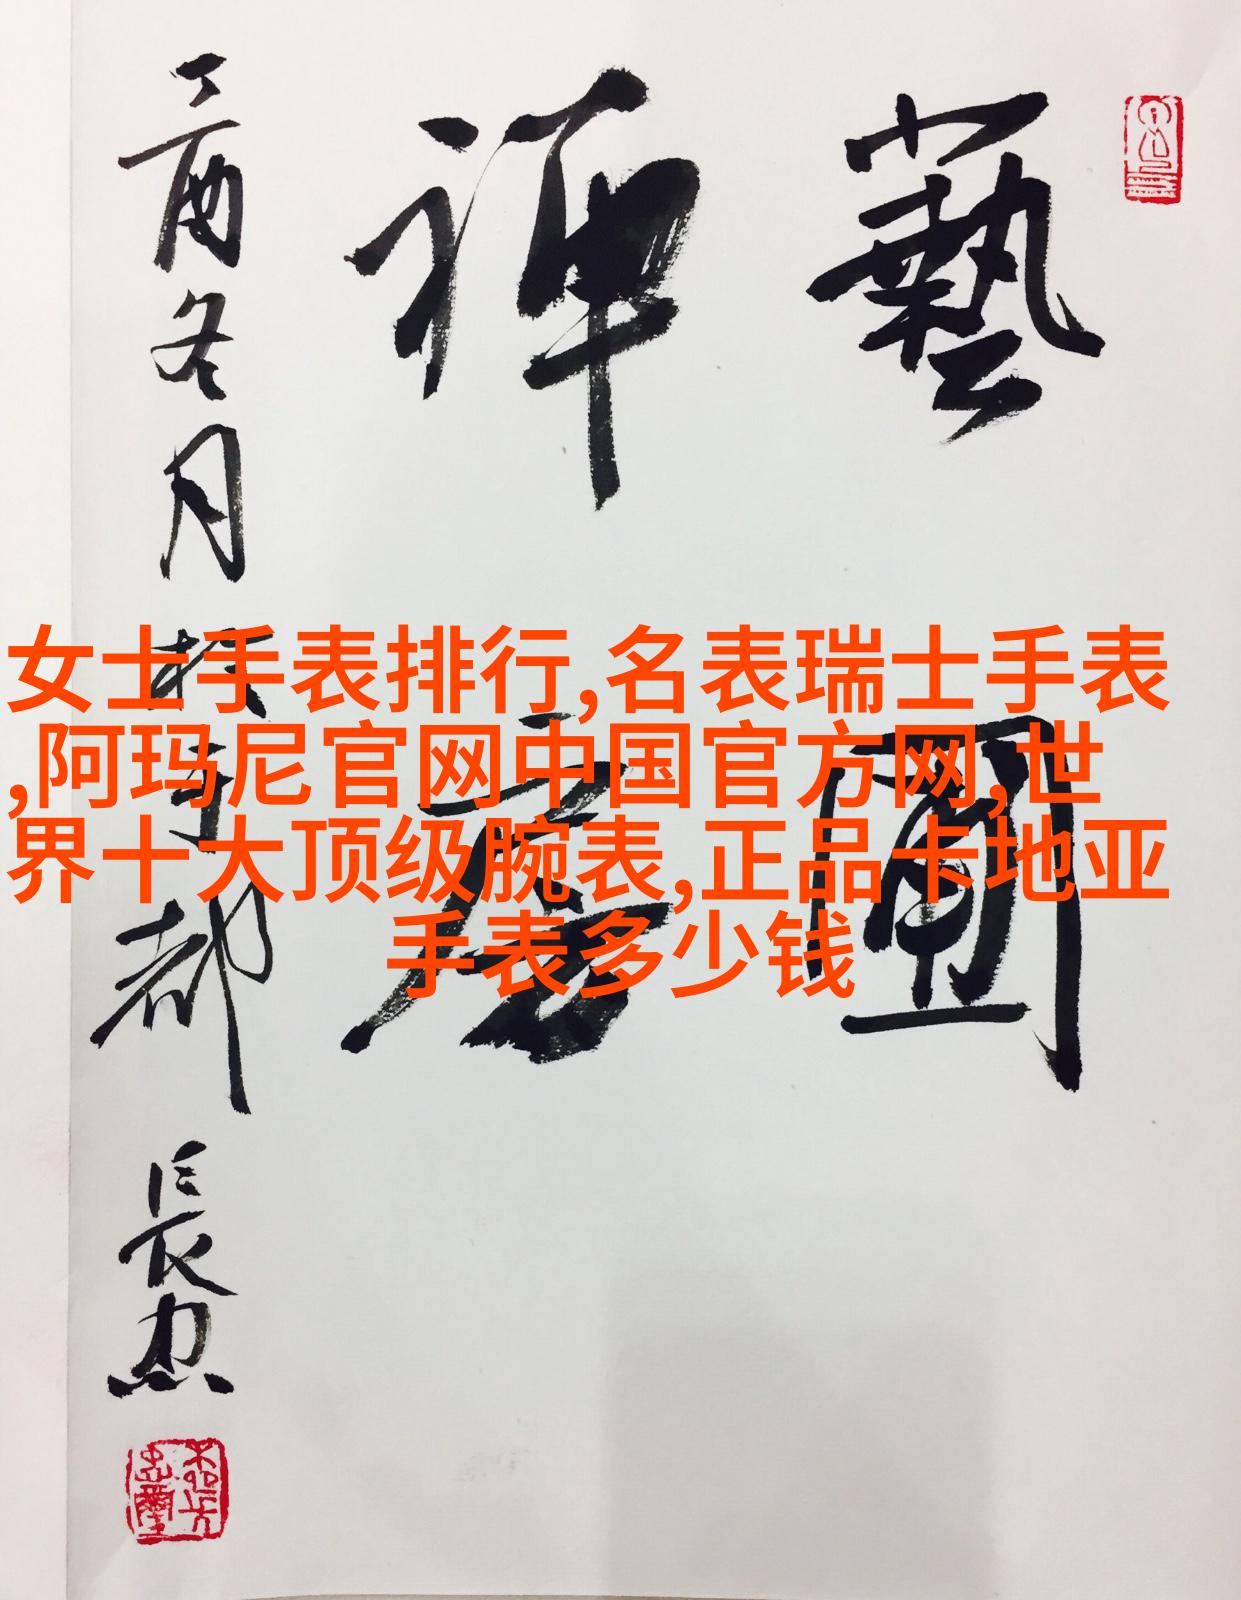 藝
禪
丁酉冬月 都 長忠
女士手表排行,名表瑞士手表
,阿玛尼官网中国官方网,世
界十大顶级腕表,正品卡地亚
手表多少钱